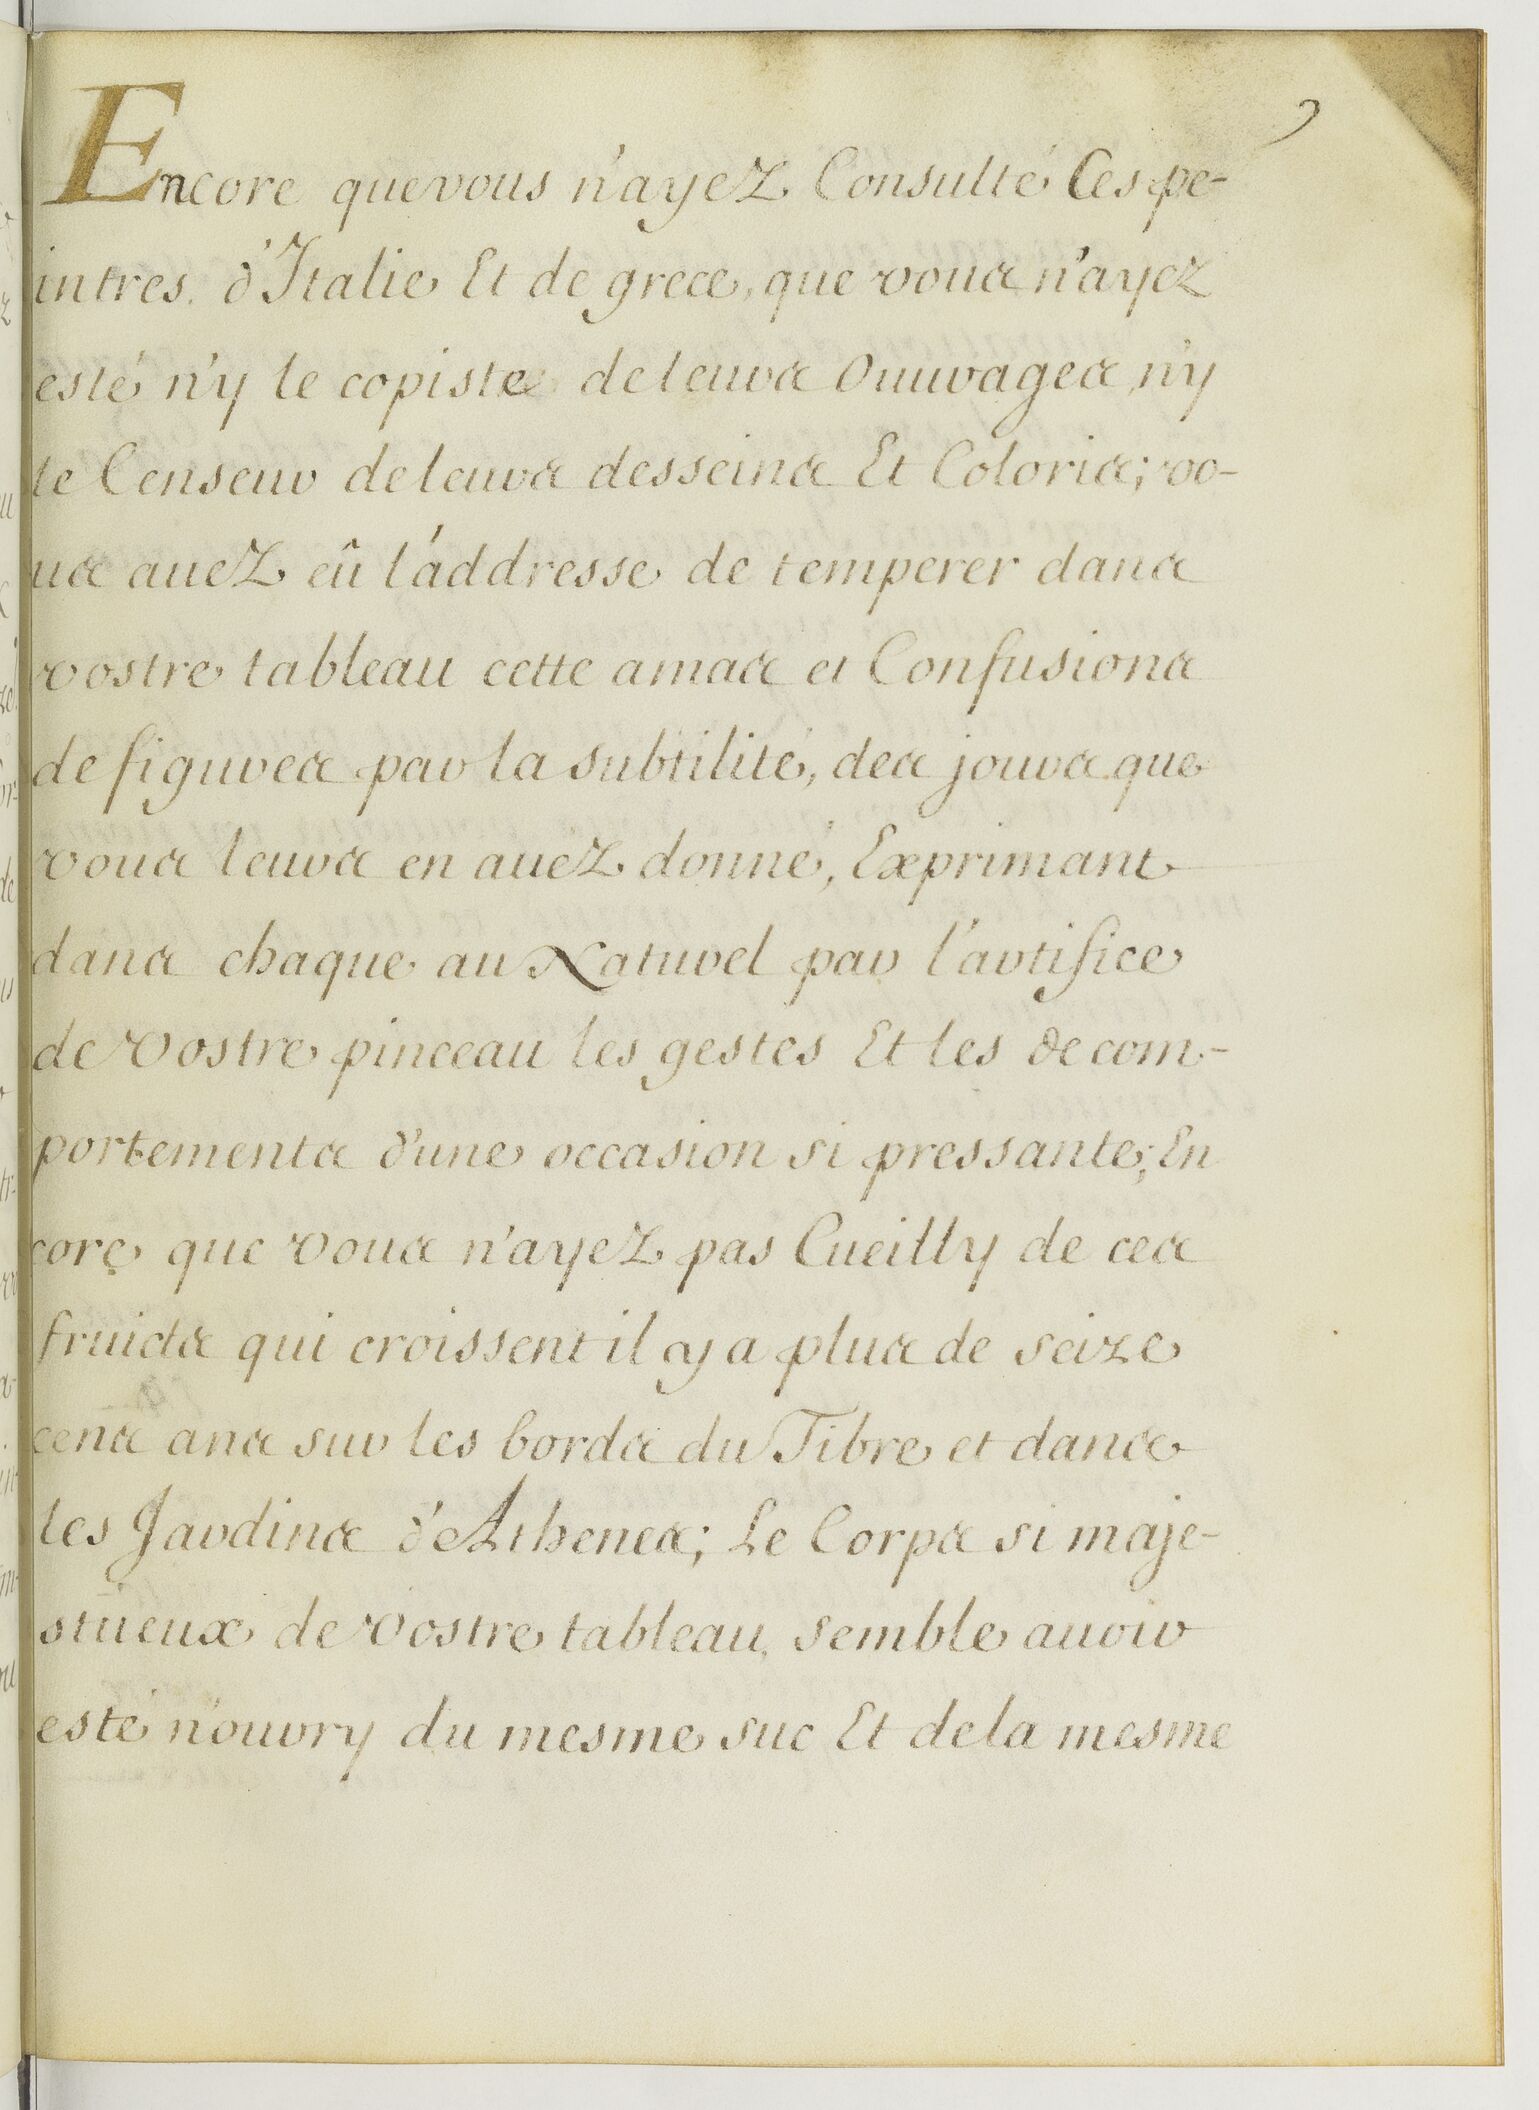 9
Encore que vous n'ayez Consulté Ces pe-
intres. d'Italie Et de grece, que vous n'ayez
esté n'y le copiste de leurs Ouurages n'y
le Censeur de leurs desseins Et Coloris; vo-
us auez eû l'addresse de temperer dans
vostre tableau cette amas et Confusions
de figures par la subtilité, des jours que
vous leurs en auez donné, Exprimant
dans chaque au Naturel par l'artifice
de Vostre pinceau les gestes Et les decom-
portements d'une occasion si pressante; En
core que vous n'ayez pas Cueilly de ces
fruicts qui croissent il y a plus de seize
cens ans sur les bords du Tibre et dans
les Jardins d'Athenes; Le Corps si maje-
stueux de Vostre tableau, semble auoir
esté n'ourry du mesme suc Et de la mesme